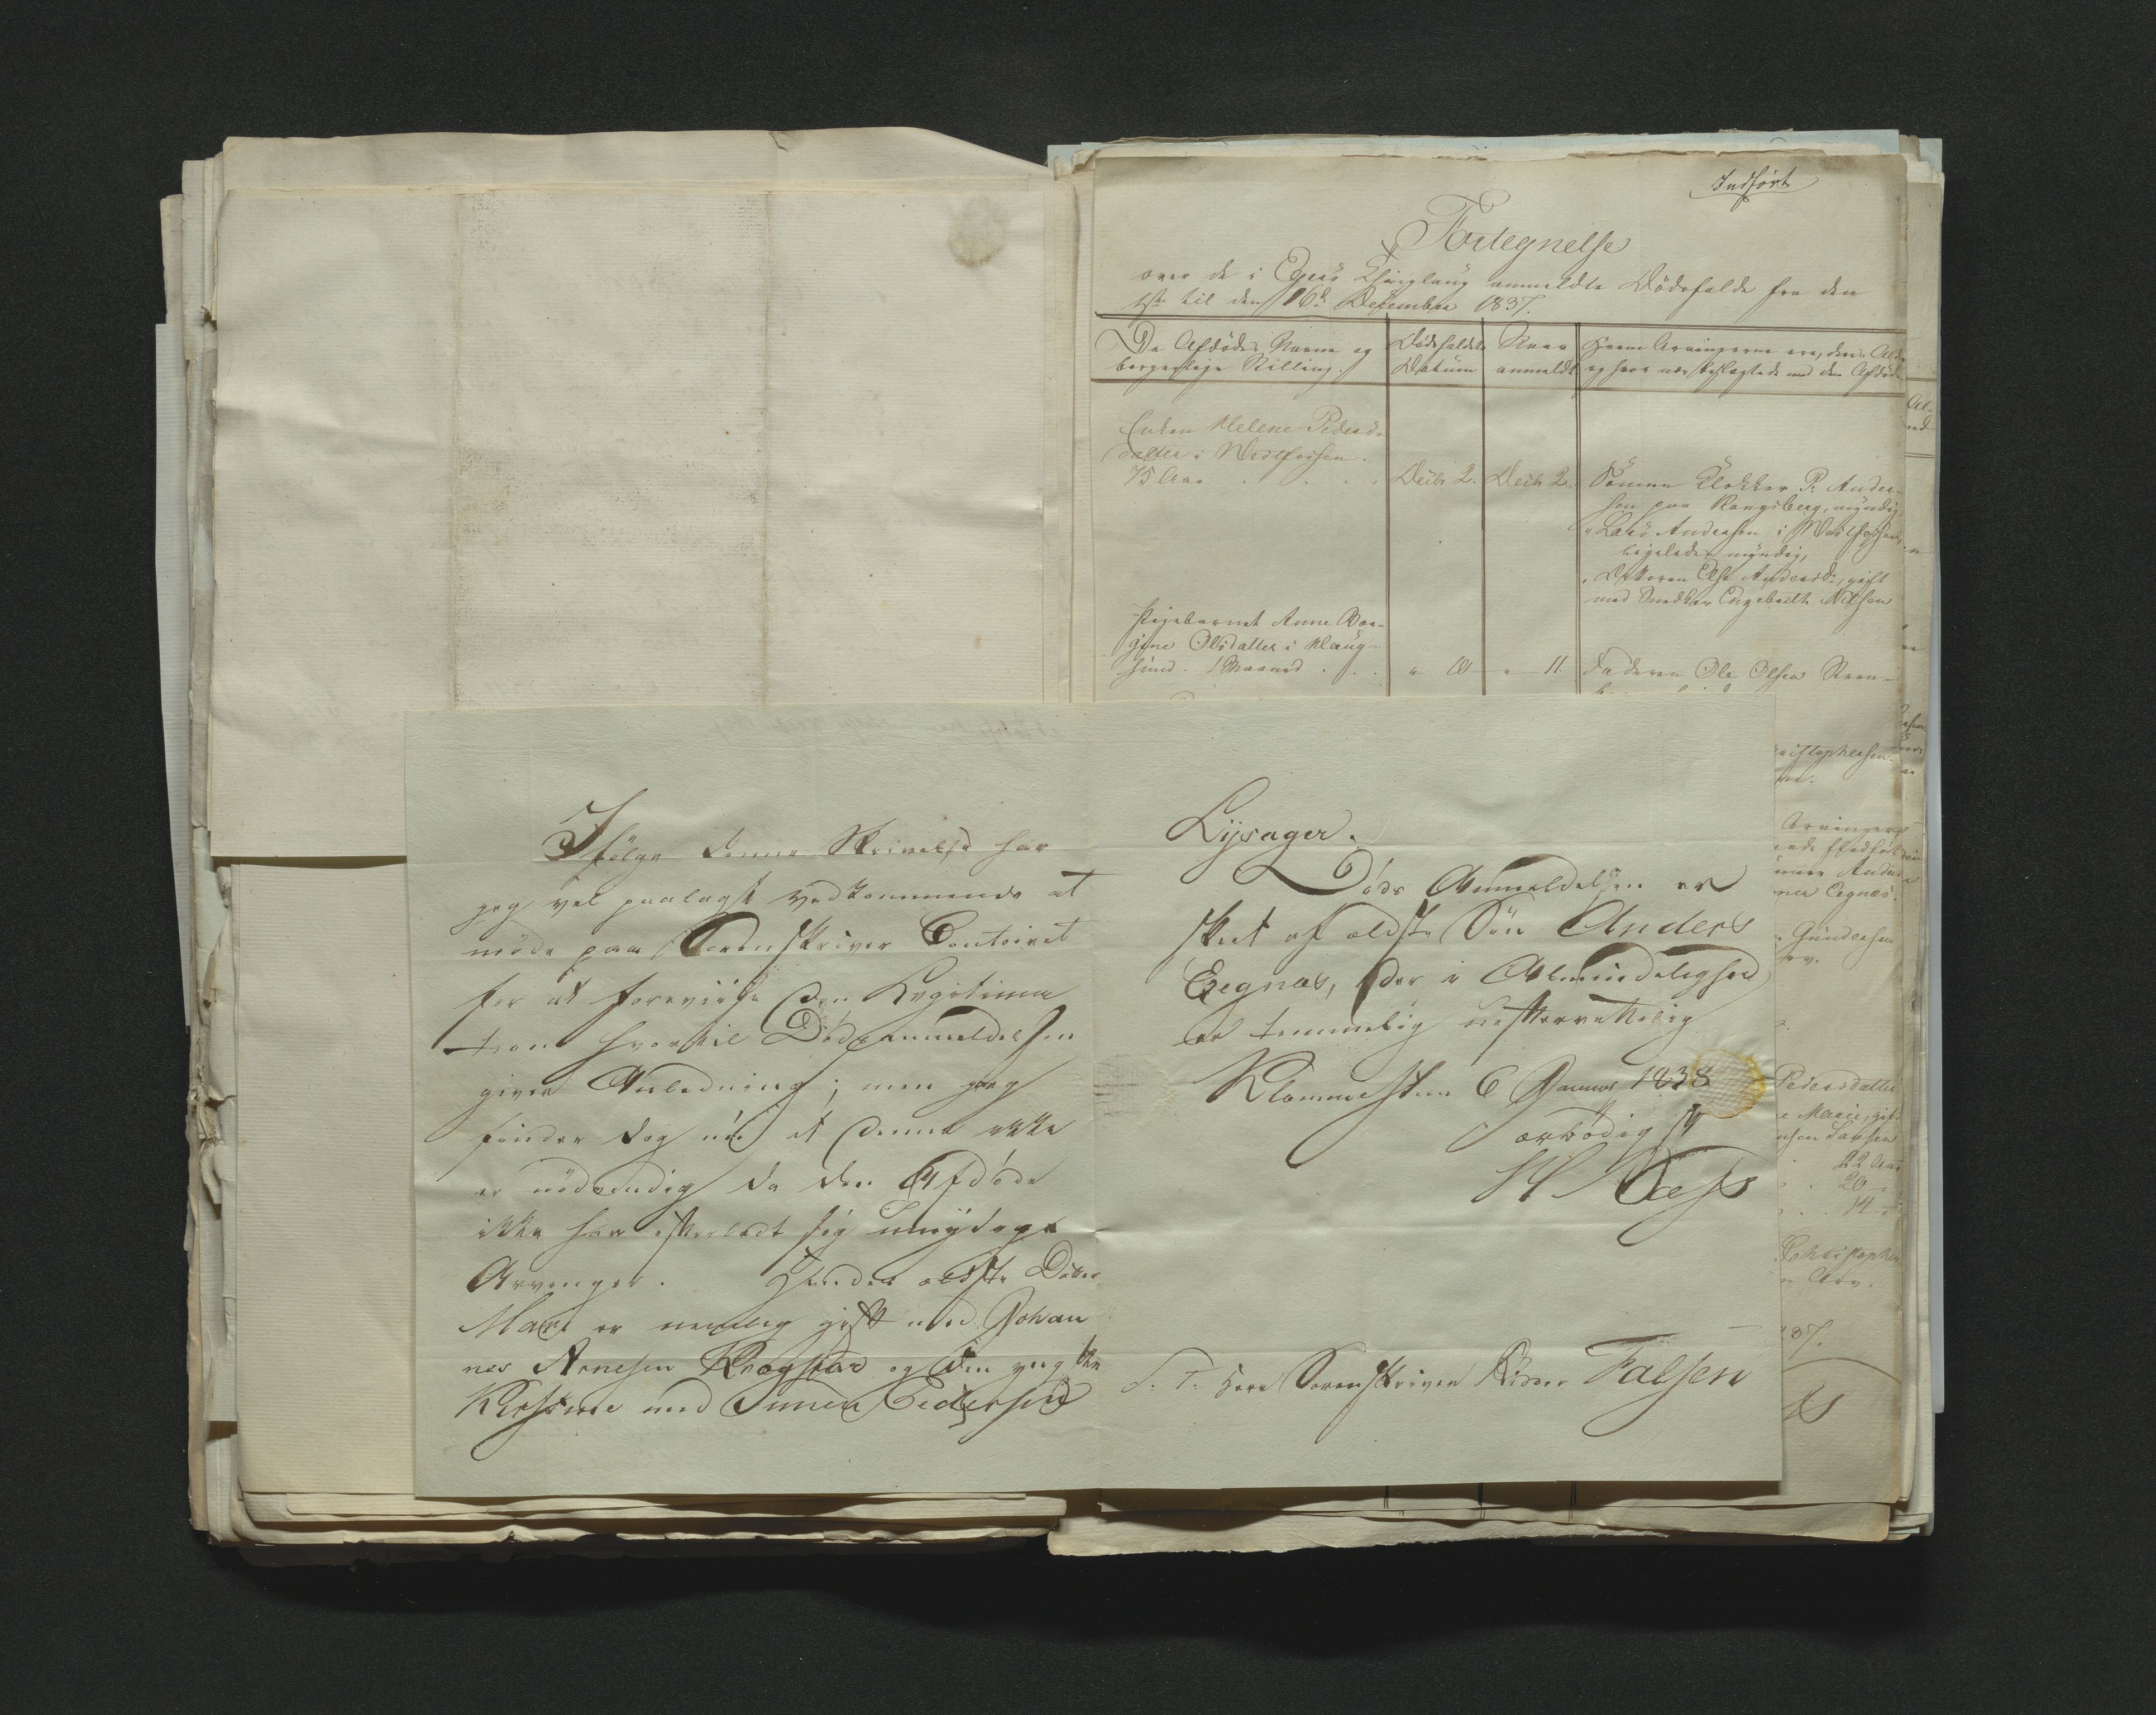 Indført
Fortegnelse
over de i Egers Thinglaug anmeldte Dødsfalde fra den
1ste til den 16de December 1837.
De Afdødes Navne og borgerlige Stilling.
Dødsfaldets Datum
Naar anmeldt
Hvem Arvingerne ere, deres Alder og hvor nær beslægtede med den Afdøde
Enken Helene Peders-
datter i Vestfossen.
75 Aar
Decbr 2.
Decbr 2.
Sønnen Klokker P. Ander-
sen paa Kongsberg, myndig,
" Lars Andersen i Vestfossen,
ligeledes myndig,
Datteren Else Andersd., gift
med Snedker Engebrett Nilsen
Pigebarnet Anne
Olsdatter i Haug-
sund. 1 Maaned
" 10
" 11
Faderen Ole Olsen
Ifølge denne Skrivelse har
jeg vel paalagt Vedkommende at
møde paa Sorenskriver Contoiret
for at foreviise den Legitima
tion hvortil Dødsanmeldelsen
giver Anledning; men jeg
finder dog nu at denne ikke
er nødvendig da den Afdøde
ikke har efterladt sig umyndige
Arvinger. Hendes ældste Datter
Mari er nemlig gift med Johan
nes Arnesen Krogstad og den yngste
Kirstine med Simen Pedersen
Lysager.
Døds Anmeldelsen er
skeet af ældste Søn Anders
Eegnæs, der i Almindelighed
er temmelig uefterrettelig
6 Januar 1838
ærbødigst
S. T. Herr Sorenskriver Ridder Falsen
istophersen.
Arvinger
Eegnæs.
Gundersen
Pedersdatter
Marie, gift
Larsen
22 Aar
20
14
Christopher
Arv.